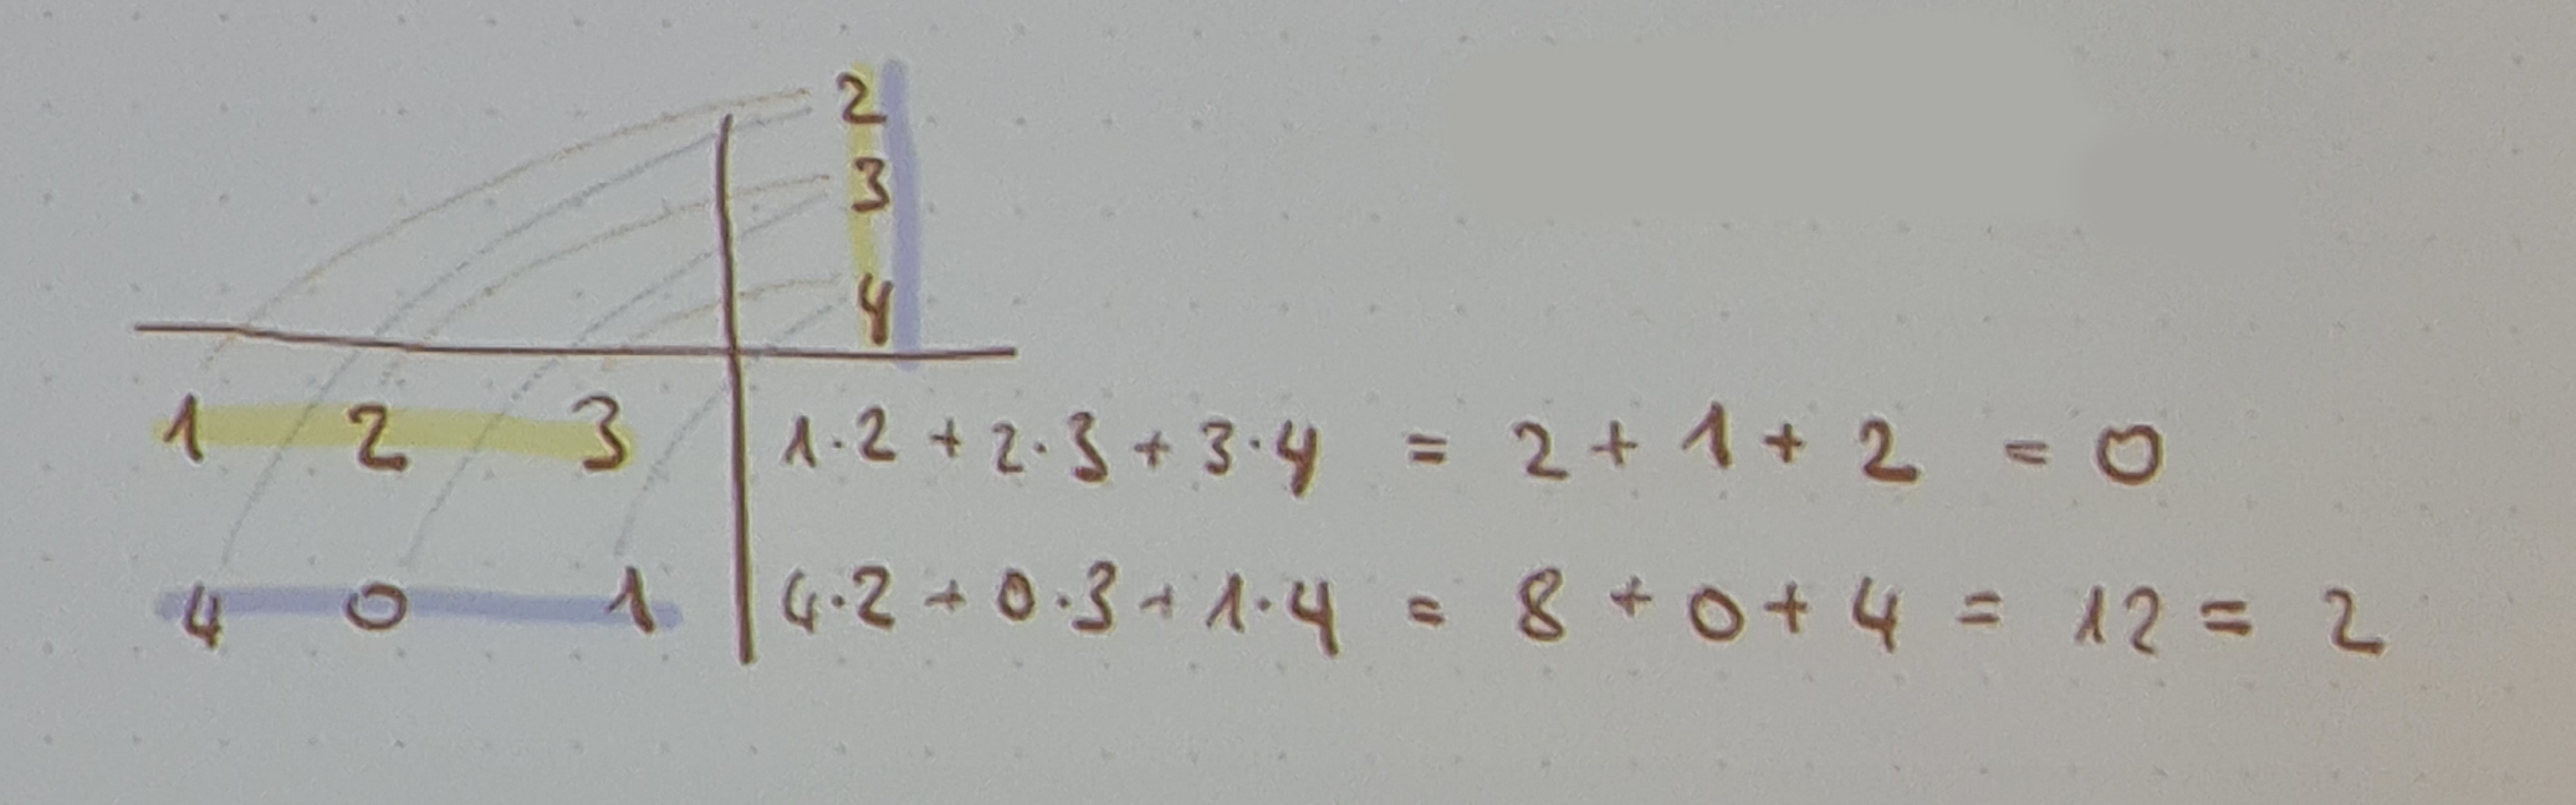 2
3
4
1 2 3 1·2 + 2·3 + 3·4 = 2 + 1 + 2 = 0
4 0 1 4·2 + 0·3 + 1·4 = 8 + 0 + 4 = 12 = 2